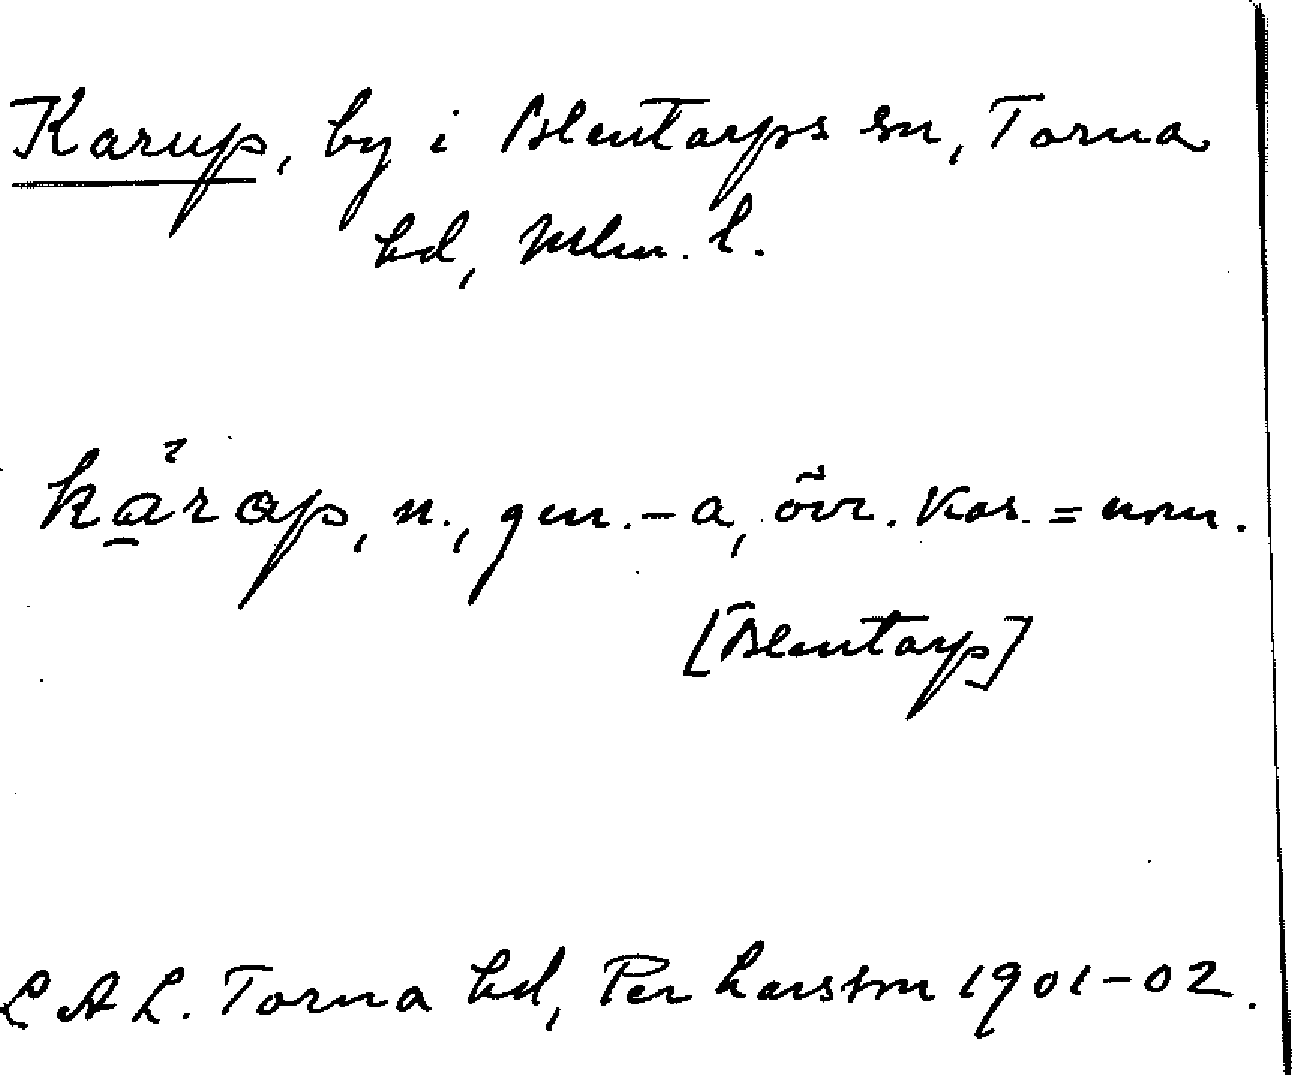 Karup, by i Blentarps sn, Torna
hd, Mlm. l.
kārap, n., gen. -a, övr. kas. = nom.
[Blentarp]
LAL. Torna hd, Per Larsson 1901-02.